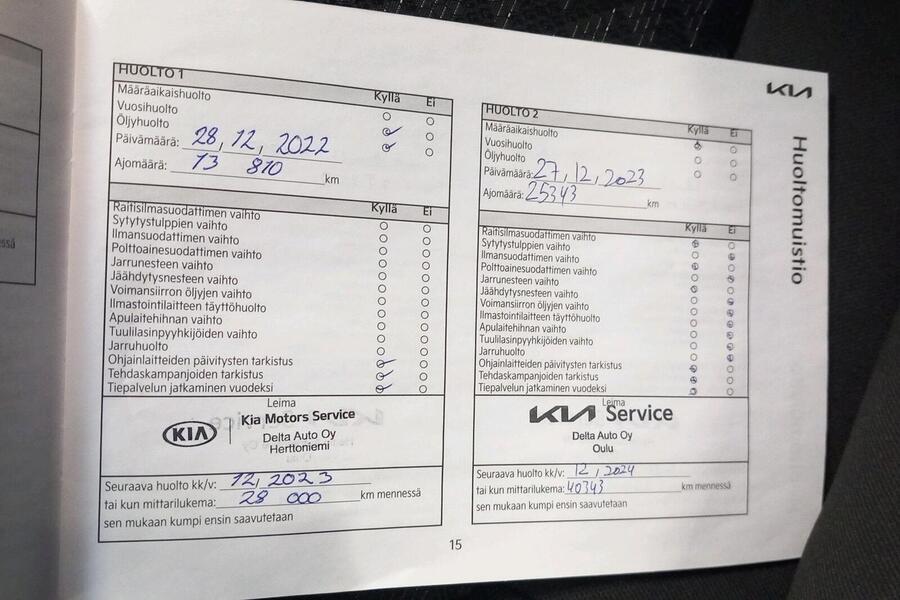 KIA
Huoltomuistio
HUOLTO 1
Kyllä Ei
Määräaikaishuolto
Vuosihuolto
Öljyhuolto
Päivämäärä: 28, 12, 2022
Ajomäärä: 13 810 km
Kyllä Ei
Raitisilmasuodattimen vaihto
Sytytystulppien vaihto
Ilmansuodattimen vaihto
Polttoainesuodattimen vaihto
Jarrunesteen vaihto
Jäähdytysnesteen vaihto
Voimansiirron öljyjen vaihto
Ilmastointilaitteen täyttöhuolto
Apulaitehihnan vaihto
Tuulilasinpyyhkijöiden vaihto
Jarruhuolto
Ohjainlaitteiden päivitysten tarkistus
Tehdaskampanjoiden tarkistus
Tiepalvelun jatkaminen vuodeksi
Leima
KIA Kia Motors Service
Delta Auto Oy
Herttoniemi
Seuraava huolto kk/v: 12, 2023
tai kun mittarilukema: 28 000 km mennessä
sen mukaan kumpi ensin saavutetaan
HUOLTO 2
Kyllä Ei
Määräaikaishuolto
Vuosihuolto
Öljyhuolto
Päivämäärä: 27, 12, 2023
Ajomäärä: 25343 km
Kyllä Ei
Raitisilmasuodattimen vaihto
Sytytystulppien vaihto
Ilmansuodattimen vaihto
Polttoainesuodattimen vaihto
Jarrunesteen vaihto
Jäähdytysnesteen vaihto
Voimansiirron öljyjen vaihto
Ilmastointilaitteen täyttöhuolto
Apulaitehihnan vaihto
Tuulilasinpyyhkijöiden vaihto
Jarruhuolto
Ohjainlaitteiden päivitysten tarkistus
Tehdaskampanjoiden tarkistus
Tiepalvelun jatkaminen vuodeksi
Leima
KIA Service
Delta Auto Oy
Oulu
Seuraava huolto kk/v: 12, 2024
tai kun mittarilukema: 40343 km mennessä
sen mukaan kumpi ensin saavutetaan
15